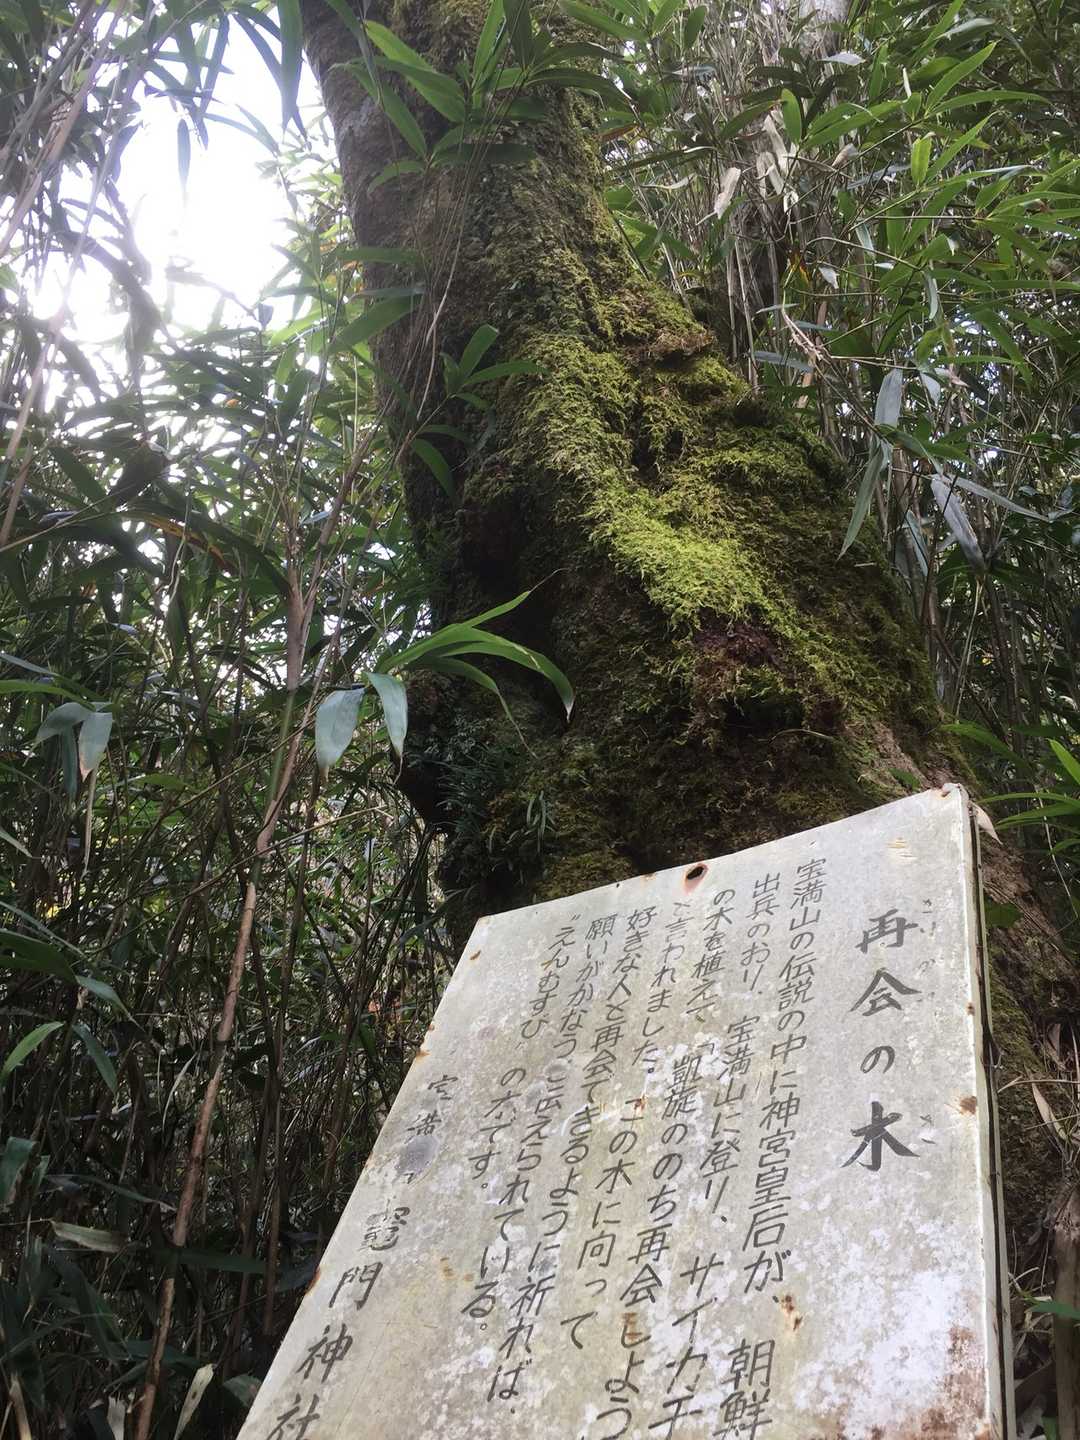 再会の木
さいかいのき
宝満山の伝説の中に神宮皇后が、朝鮮
出兵のおり、宝満山に登り、サイカチ
の木を植えて「凱旋ののち再会しよう
と言われました。この木に向って
好きな人と再会できるように祈れば、
願いがかなうと伝えられている。
"えんむすび"の木です。
宝満 竈門神社